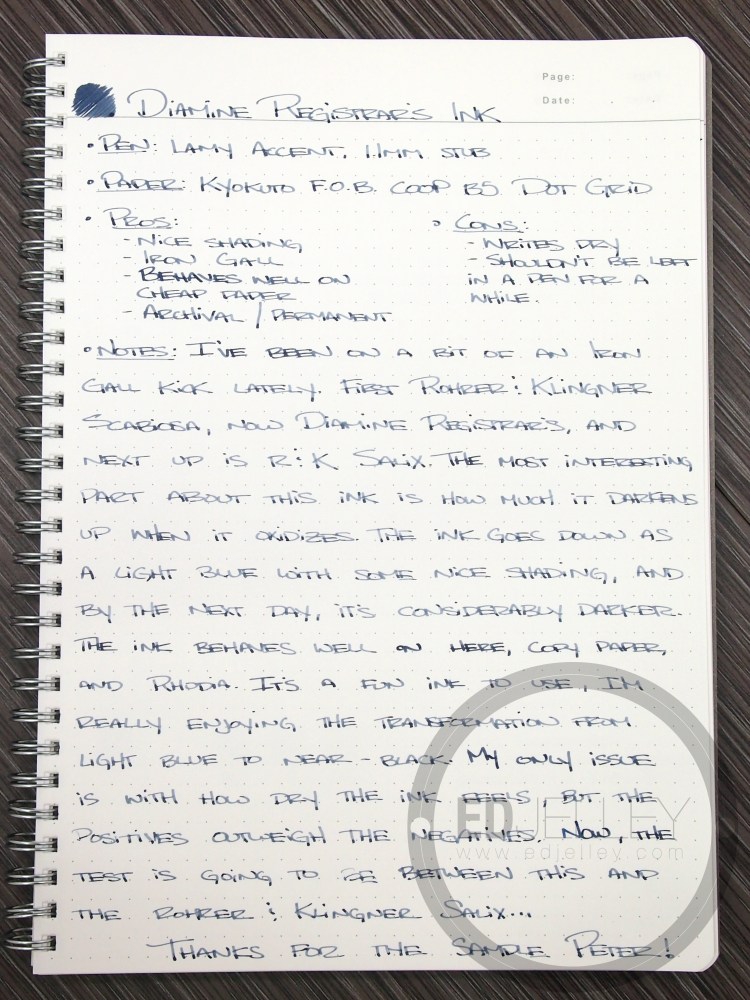 Page:
Date:
Diamine Registrar's Ink
• Pen: Lamy Accent, 1.1mm stub
• Paper: Kyokuto F.O.B. COOP B5 Dot Grid
• Pros:
- Nice shading
- Iron Gall
- Behaves well on
cheap paper
- Archival / permanent
• Cons:
- Writes dry
- Shouldn't be left
in a pen for a
while.
• Notes: I've been on a bit of an Iron
Gall kick lately. First Rohrer & Klingner
Scabiosa, now Diamine Registrar's, and
next up is R&K Salix. The most interesting
part about this ink is how much it darkens
up when it oxidizes. The ink goes down as
a light blue with some nice shading, and
by the next day, it's considerably darker.
The ink behaves well on here, copy paper,
and Rhodia. It's a fun ink to use, I'm
really enjoying the transformation from
light blue to near-black. My only issue
is with how dry the ink feels, but the
positives outweigh the negatives. Now, the
test is going to be between this and
the Rohrer & Klingner Salix...
Thanks for the sample Peter!
EDJELLEY
www.edjelley.com